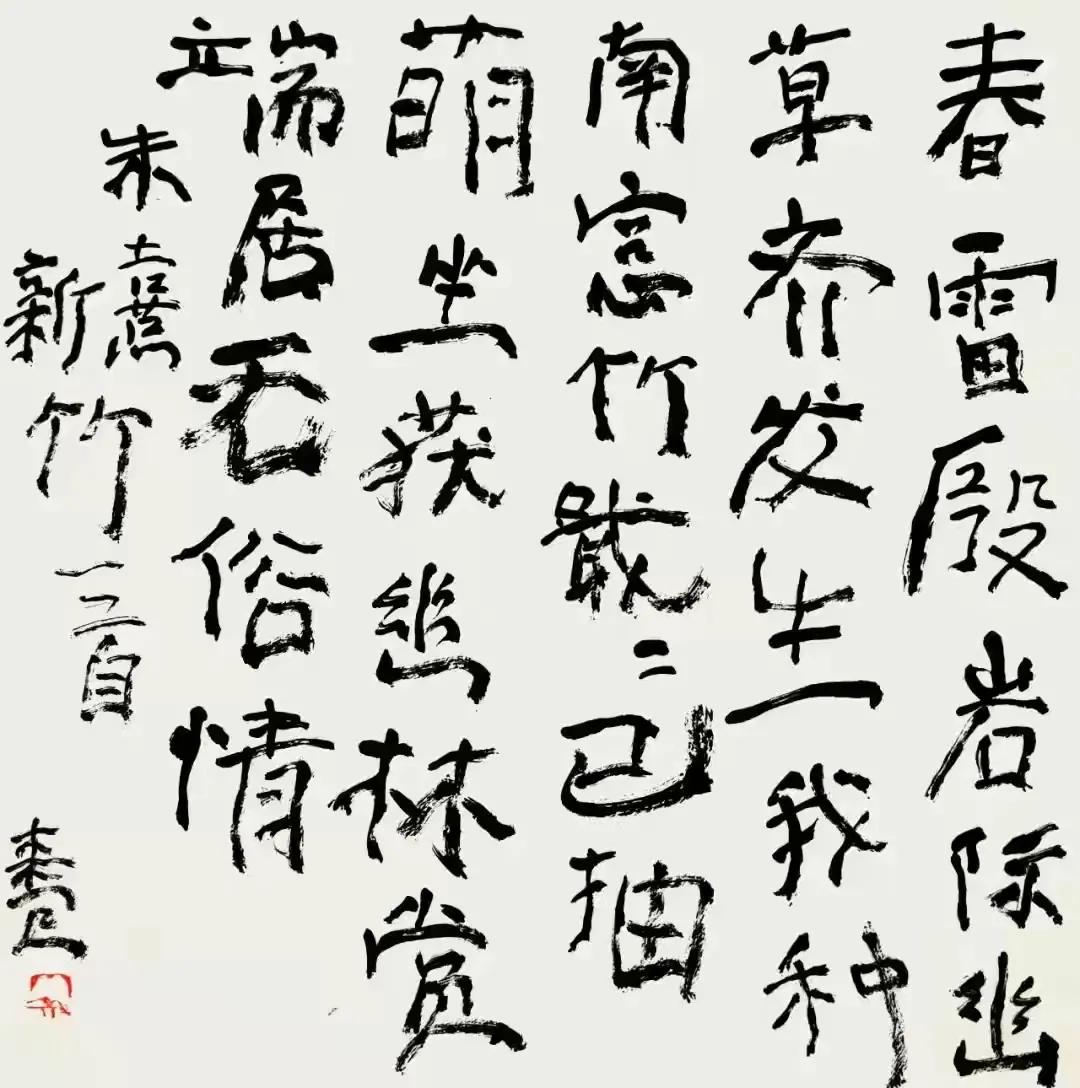 春雷殷岩际幽
草齐发生我种
南窓竹戢〻已抽
萌坐获幽林赏
端居无俗情
朱熹
新竹一首